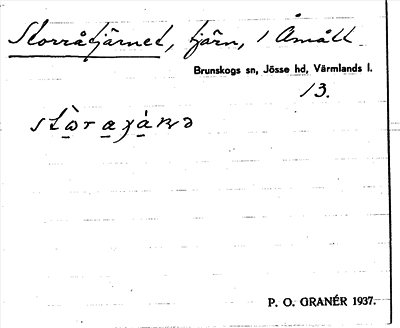 Storråtjärnet, tjärn, i Åmått
Brunskogs sn, Jösse hd, Värmlands l.
13.
P. O. GRANÉR 1937.